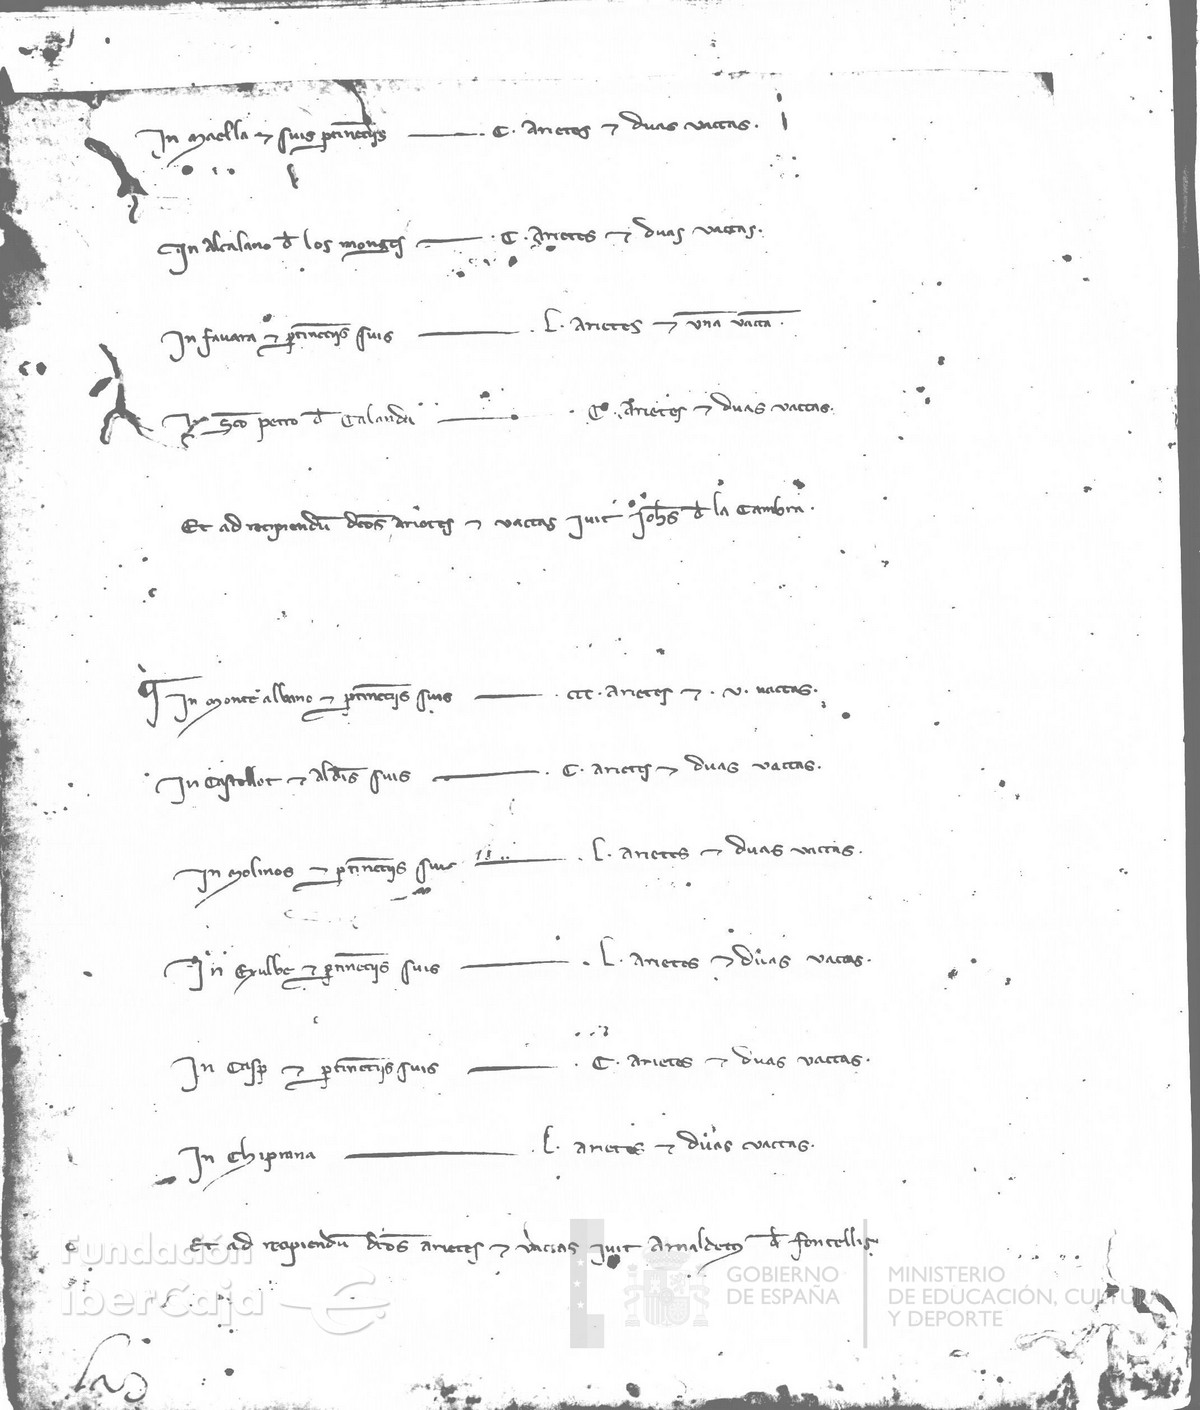 In Maella ⁊ suis ptinetiis ——— .C. Arietes ⁊ duas vaccas.
In Alcalano d los monges ——— .C. Arietes ⁊ duas vaccas.
In favara ⁊ ptinetiis suis ——— .L. Arietes ⁊ una vacca.
Sco petro d Calanda ——— .C. Arietes ⁊ duas vaccas.
Et ad recipiendu dcos arietes ⁊ vaccas ivit Johs d la Cambra.
In Monte albano ⁊ ptinetiis suis ——— .CCC. Arietes ⁊ .v. vaccas.
In Castellot ⁊ aldis suis ——— .C. arietes ⁊ duas vaccas.
In Molinos ⁊ ptinetiis suis ——— .L. arietes ⁊ duas vaccas.
In Exulbe ⁊ ptinetiis suis ——— .L. Arietes ⁊ duas vaccas.
In Casp ⁊ ptinetiis suis ——— .C. arietes ⁊ duas vaccas.
In Chiprana ——— .L. arietes ⁊ duas vaccas.
Et ad recipiendu dcos arietes ⁊ vaccas ivit Arnaldetus d fontellis
Fundación
iberCaja
GOBIERNO
DE ESPAÑA
MINISTERIO
DE EDUCACIÓN, CULTURA
Y DEPORTE